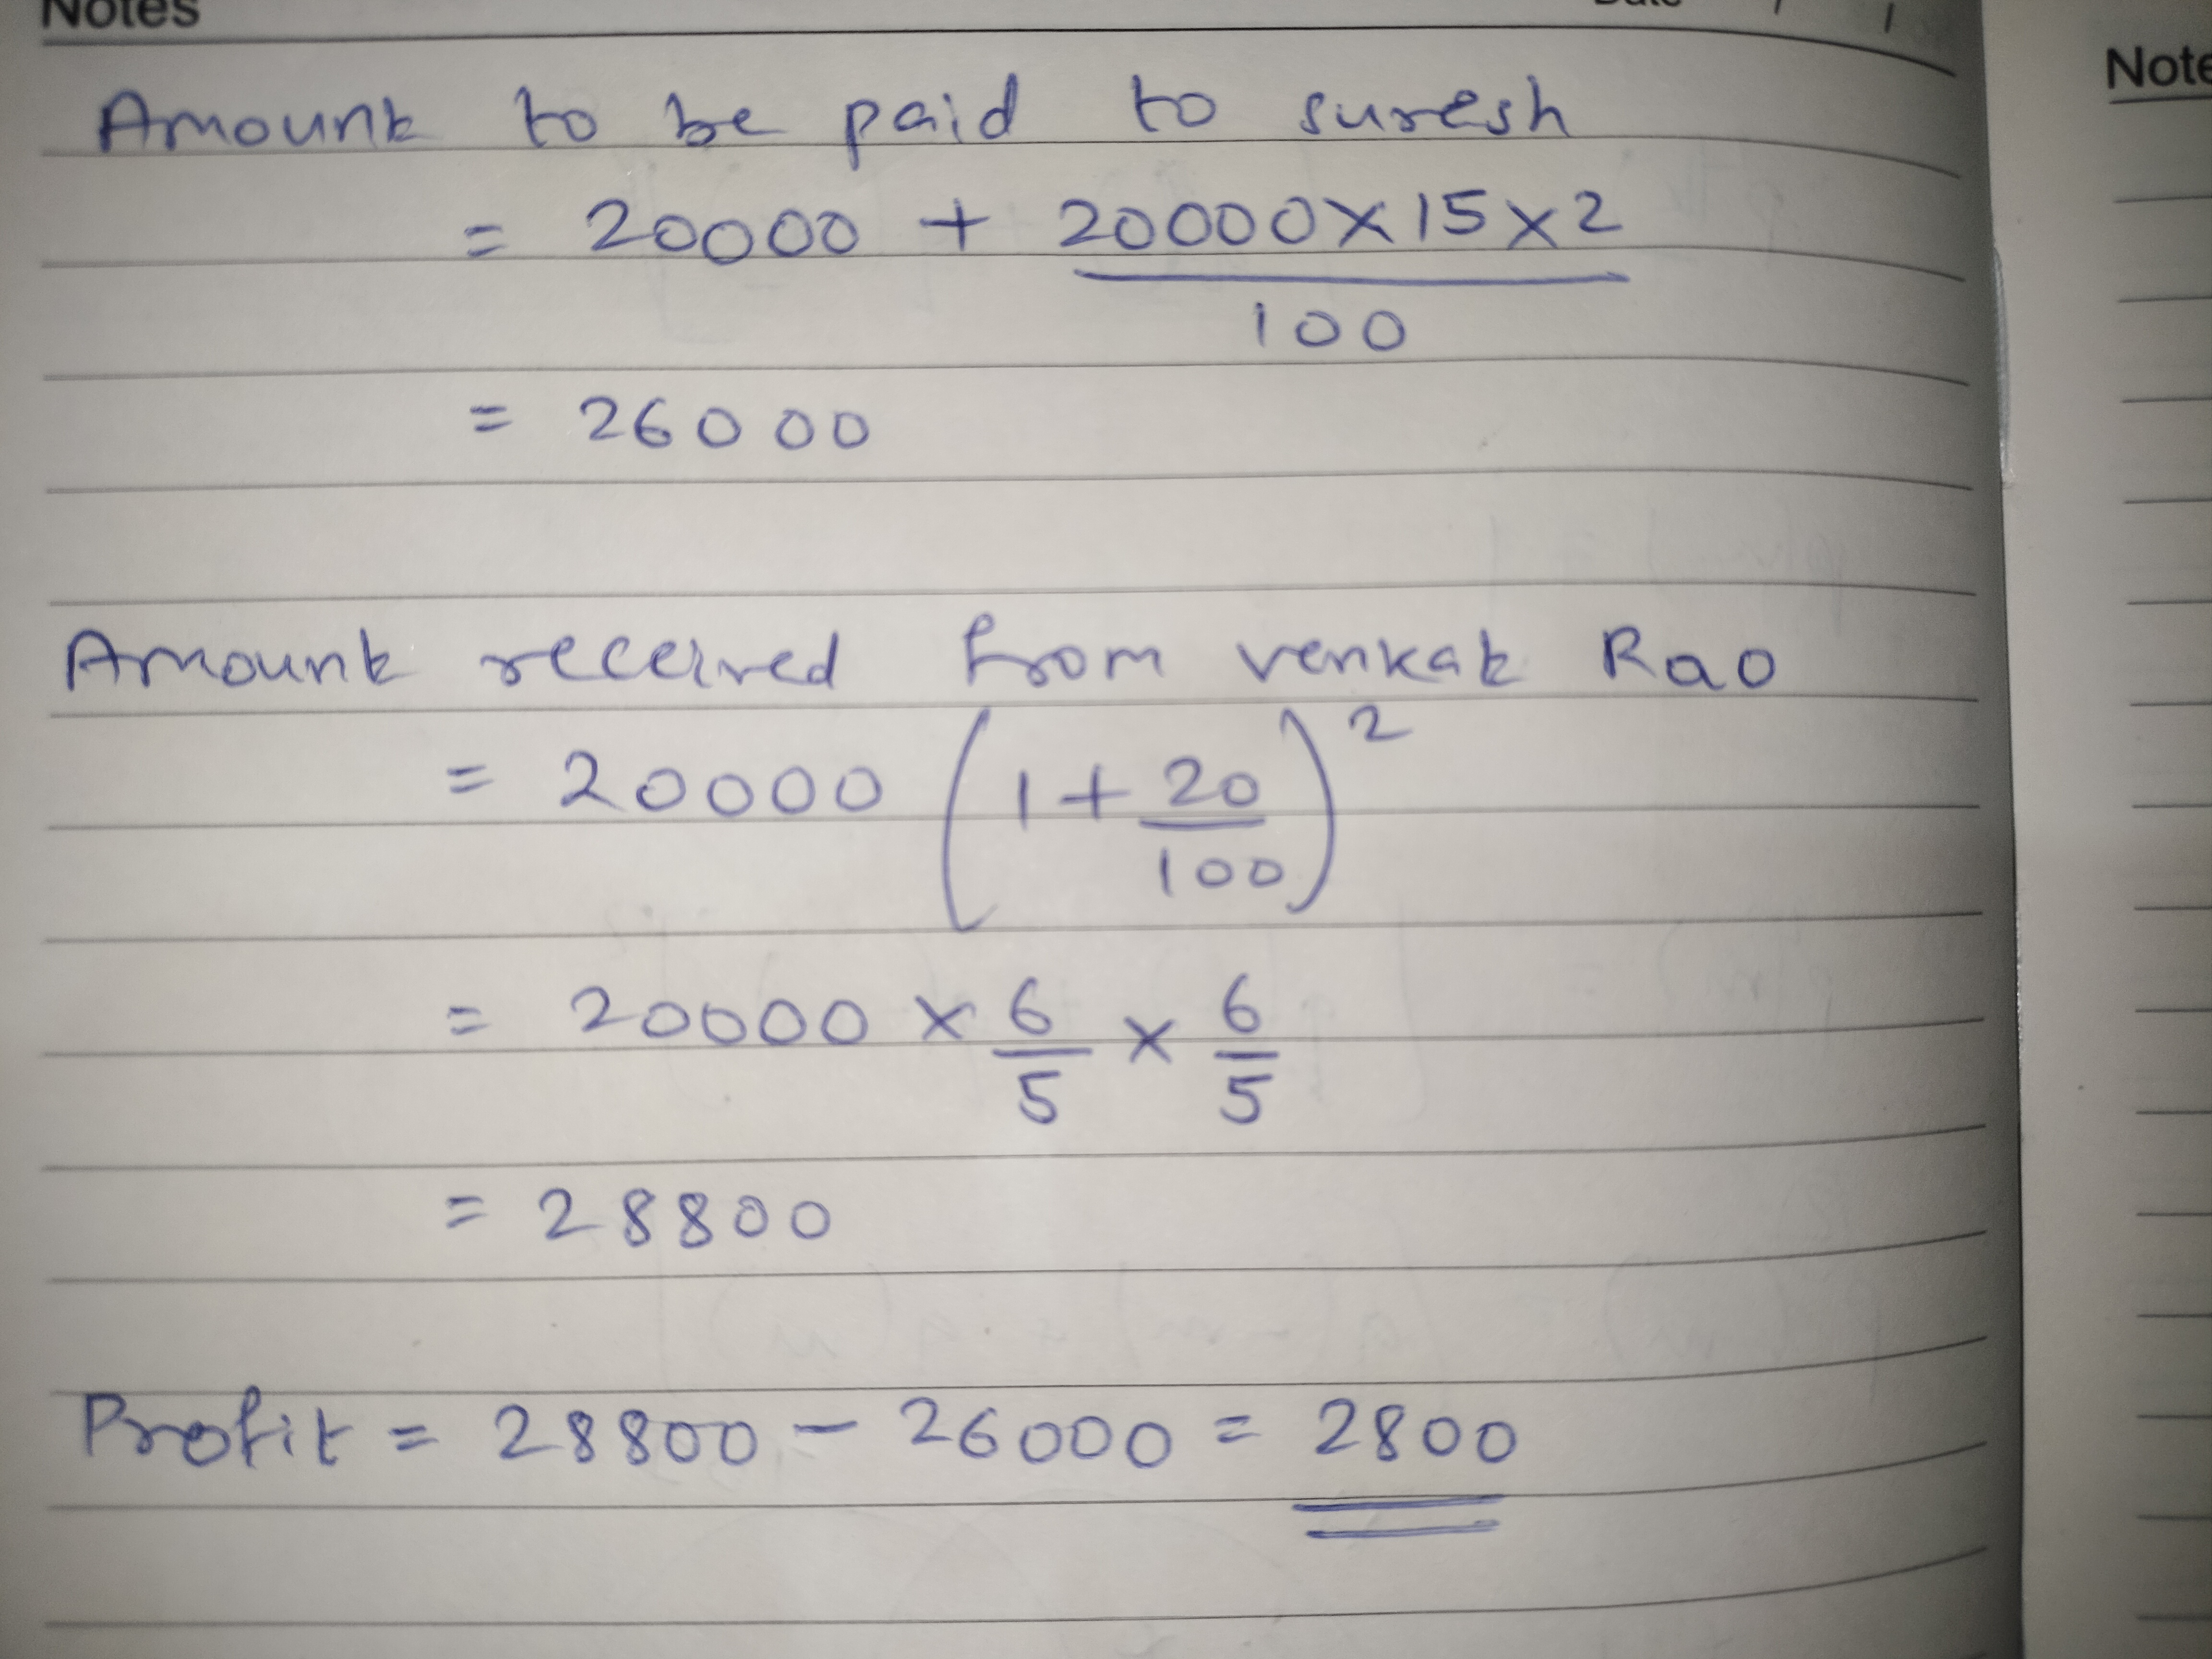 Notes
Date / /
Note
Amount to be paid to suresh
= 20000 + 20000×15×2
100
= 26000
Amount received from venkat Rao
= 20000 (1+20/100)²
= 20000 × 6/5 × 6/5
= 28800
Profit = 28800 - 26000 = 2800